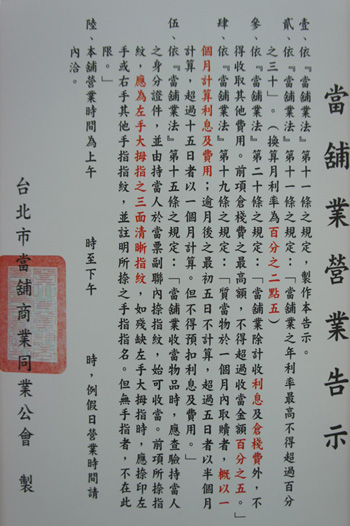 當舖業營業告示
壹、依『當舖業法』第十一條之規定，製作本告示。
貳、依『當舖業法』第十一條之規定：「當舖業之年利率最高不得超過百分
之三十」。（換算月利率為百分之二點五）
參、依『當舖業法』第二十條之規定：「當舖業除計收利息及倉棧費外，不
得收取其他費用。前項倉棧費之最高額，不得超過收當金額百分之五。」
肆、依『當舖業法』第十九條之規定：「質當物於一個月內取贖者，概以一
個月計算利息及費用；逾月後之最初五日不計算，超過五日者以半個月
計算，超過十五日者以一個月計算。但不得預扣利息及費用。」
伍、依『當舖業法』第十五條之規定：「當舖業收當物品時，應查驗持當人
之身分證件，並由持當人於當票副聯內捺指紋，始可收當。前項所捺指
紋，應為左手大拇指之三面清晰指紋，如殘缺左手大拇指時，應捺印左
手或右手其他手指指紋，並註明所捺之手指指名。但無手指者，不在此
限。」
陸、本舖營業時間為上午 時至下午 時，例假日營業時間請
內洽。
台北市當舖商業同業公會 製